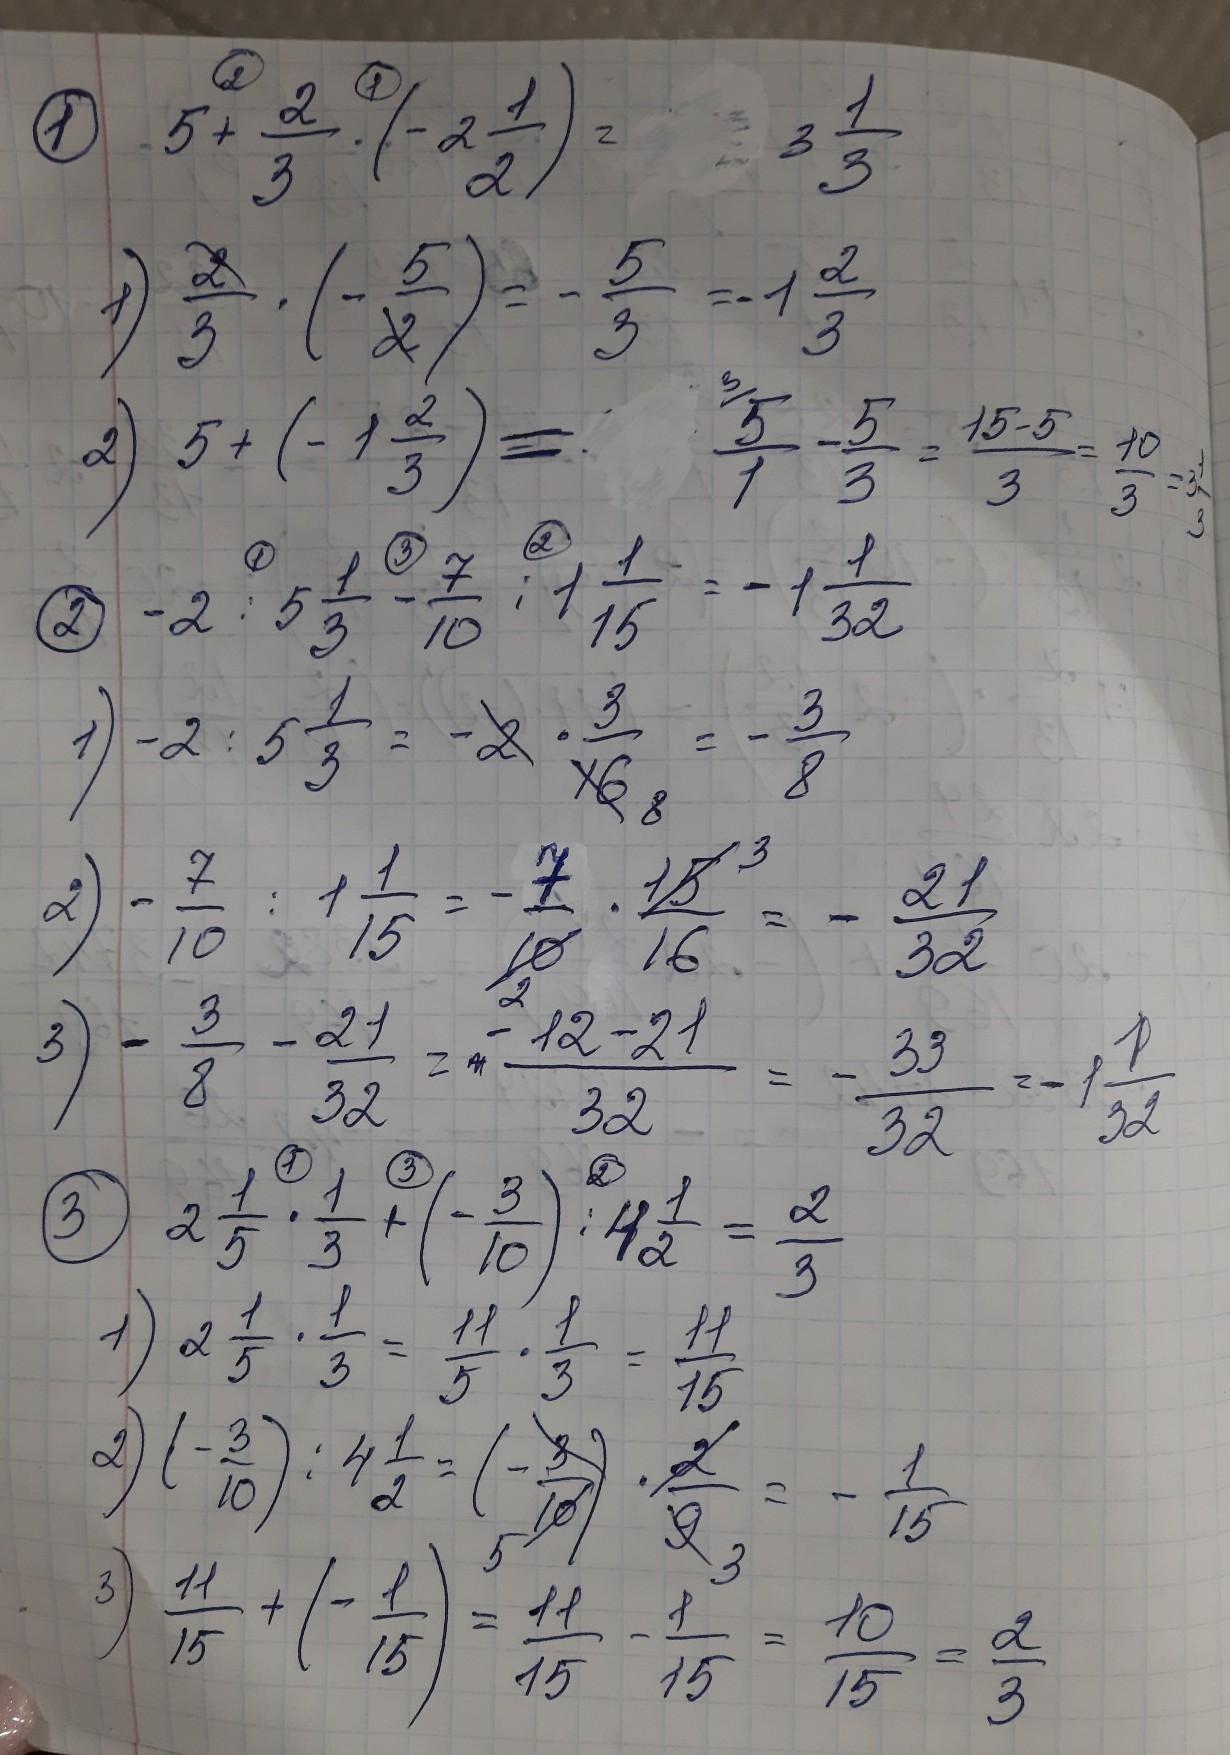 ① 5 + 2/3 · (- 2 1/2) = 3 1/3
1) 2/3 · (- 5/2) = - 5/3 = - 1 2/3
2) 5 + (- 1 2/3) = 5/1 - 5/3 = 15-5/3 = 10/3 = 3 1/3
② - 2 : 5 1/3 - 7/10 : 1 1/15 = - 1 1/32
1) - 2 : 5 1/3 = - 2 · 3/16 8 = - 3/8
2) - 7/10 : 1 1/15 = - 7/10 2 · 15 3/16 = - 21/32
3) - 3/8 - 21/32 = -12-21/32 = - 33/32 = - 1 1/32
③ 2 1/5 · 1/3 + (- 3/10) : 4 1/2 = 2/3
1) 2 1/5 · 1/3 = 11/5 · 1/3 = 11/15
2) (- 3/10) : 4 1/2 = (- 3/10 5) · 2/9 3 = - 1/15
3) 11/15 + (- 1/15) = 11/15 - 1/15 = 10/15 = 2/3